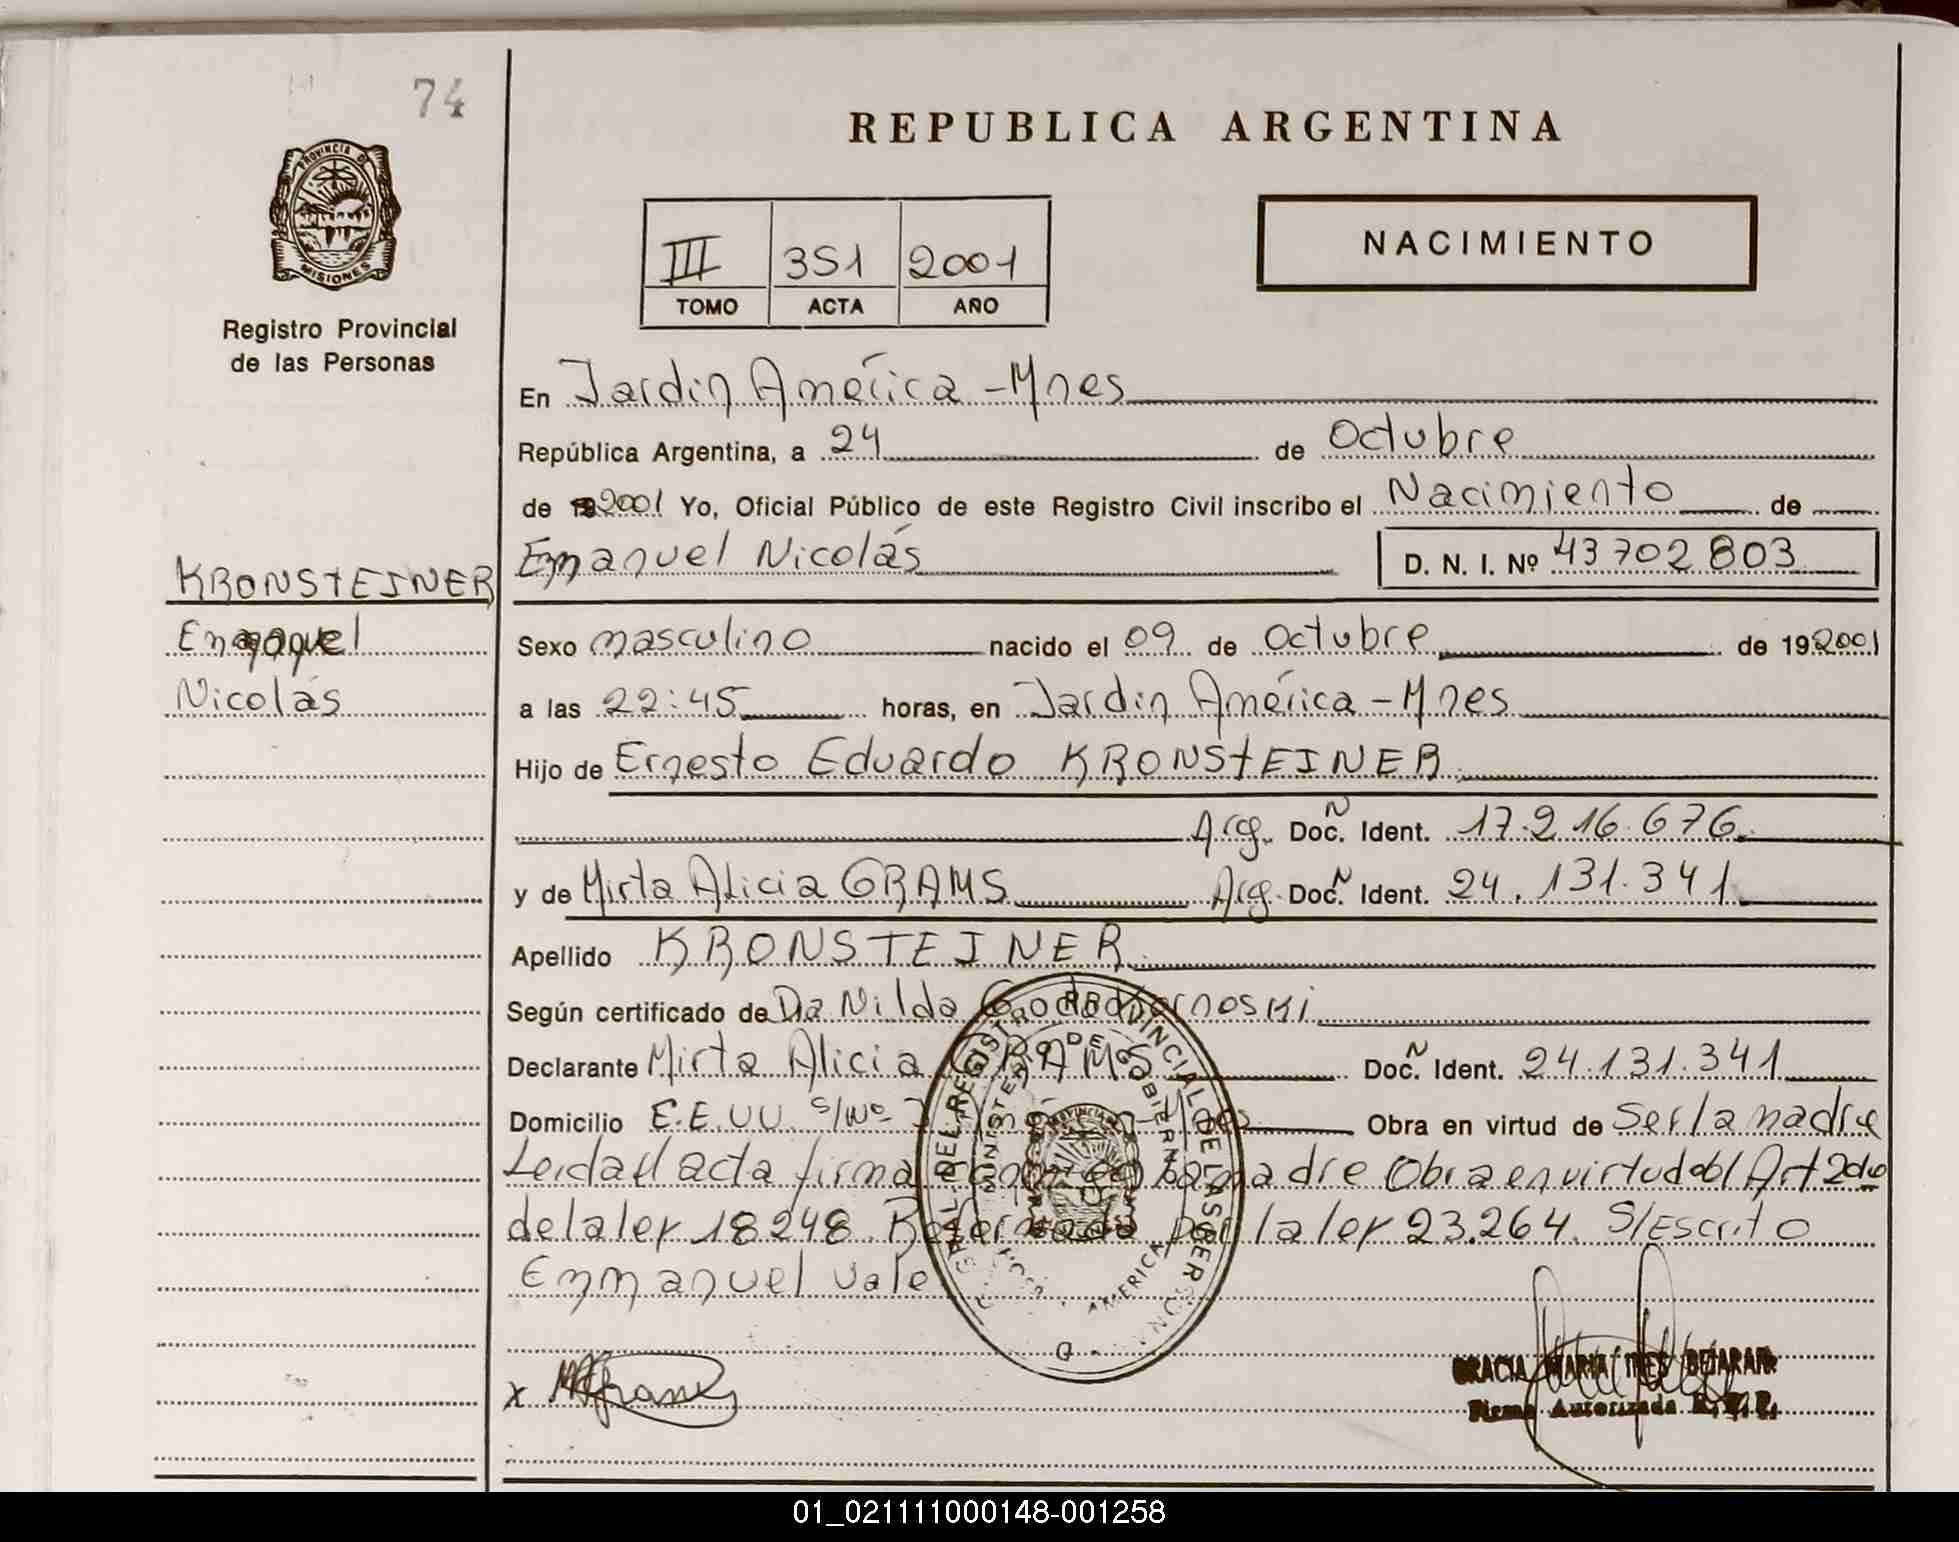 74
PROVINCIA DE
MISIONES
Registro Provincial
de las Personas
REPUBLICA ARGENTINA
III 351 2001
TOMO ACTA AÑO
NACIMIENTO
En Jardin América - Mnes
República Argentina, a 24 de Octubre
de 2001 Yo, Oficial Público de este Registro Civil inscribo el Nacimiento de
Emanuel Nicolás D. N. I. Nº 43702803
KRONSTEINER
Emanuel
Nicolás
Sexo masculino nacido el 09 de Octubre de 192001
a las 22:45 horas, en Jardin América - Mnes
Hijo de Ernesto Eduardo KRONSTEINER
Arg. Doc. Ident. 17.216.676
y de Mirta Alicia GRAMS Arg. Doc. Ident. 24.131.341
Apellido KRONSTEINER
Según certificado de Da Nilda
Declarante Mirta Alicia GRAMS Doc. Ident. 24.131.341
Domicilio E.E.UU. S/Nº Obra en virtud de Ser la madre
Leida el acta firma la madre Obra en virtud del Art 2do
de la ley 18248. Reformada por la ley 23.264. S/Escrito
Emmanuel vale
GRACIA MARIA INES BEJARAN
Firma Autorizada R. P. P.
01_021111000148-001258